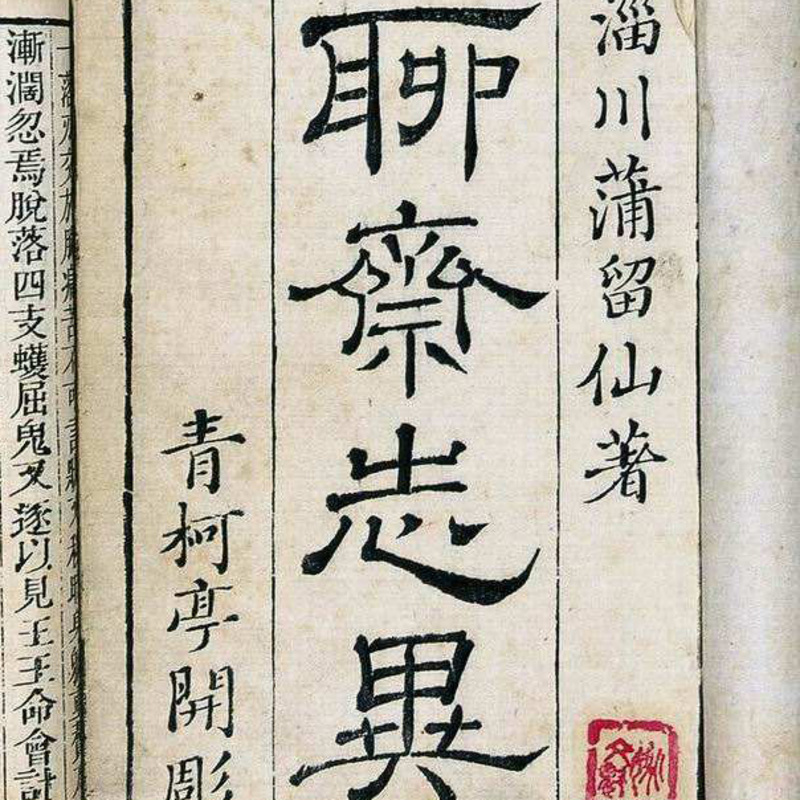 淄川蒲留仙著
聊齋志異
青柯亭開彫
漸濶忽焉脫落四支蠖屈鬼又逐以見王王命會計